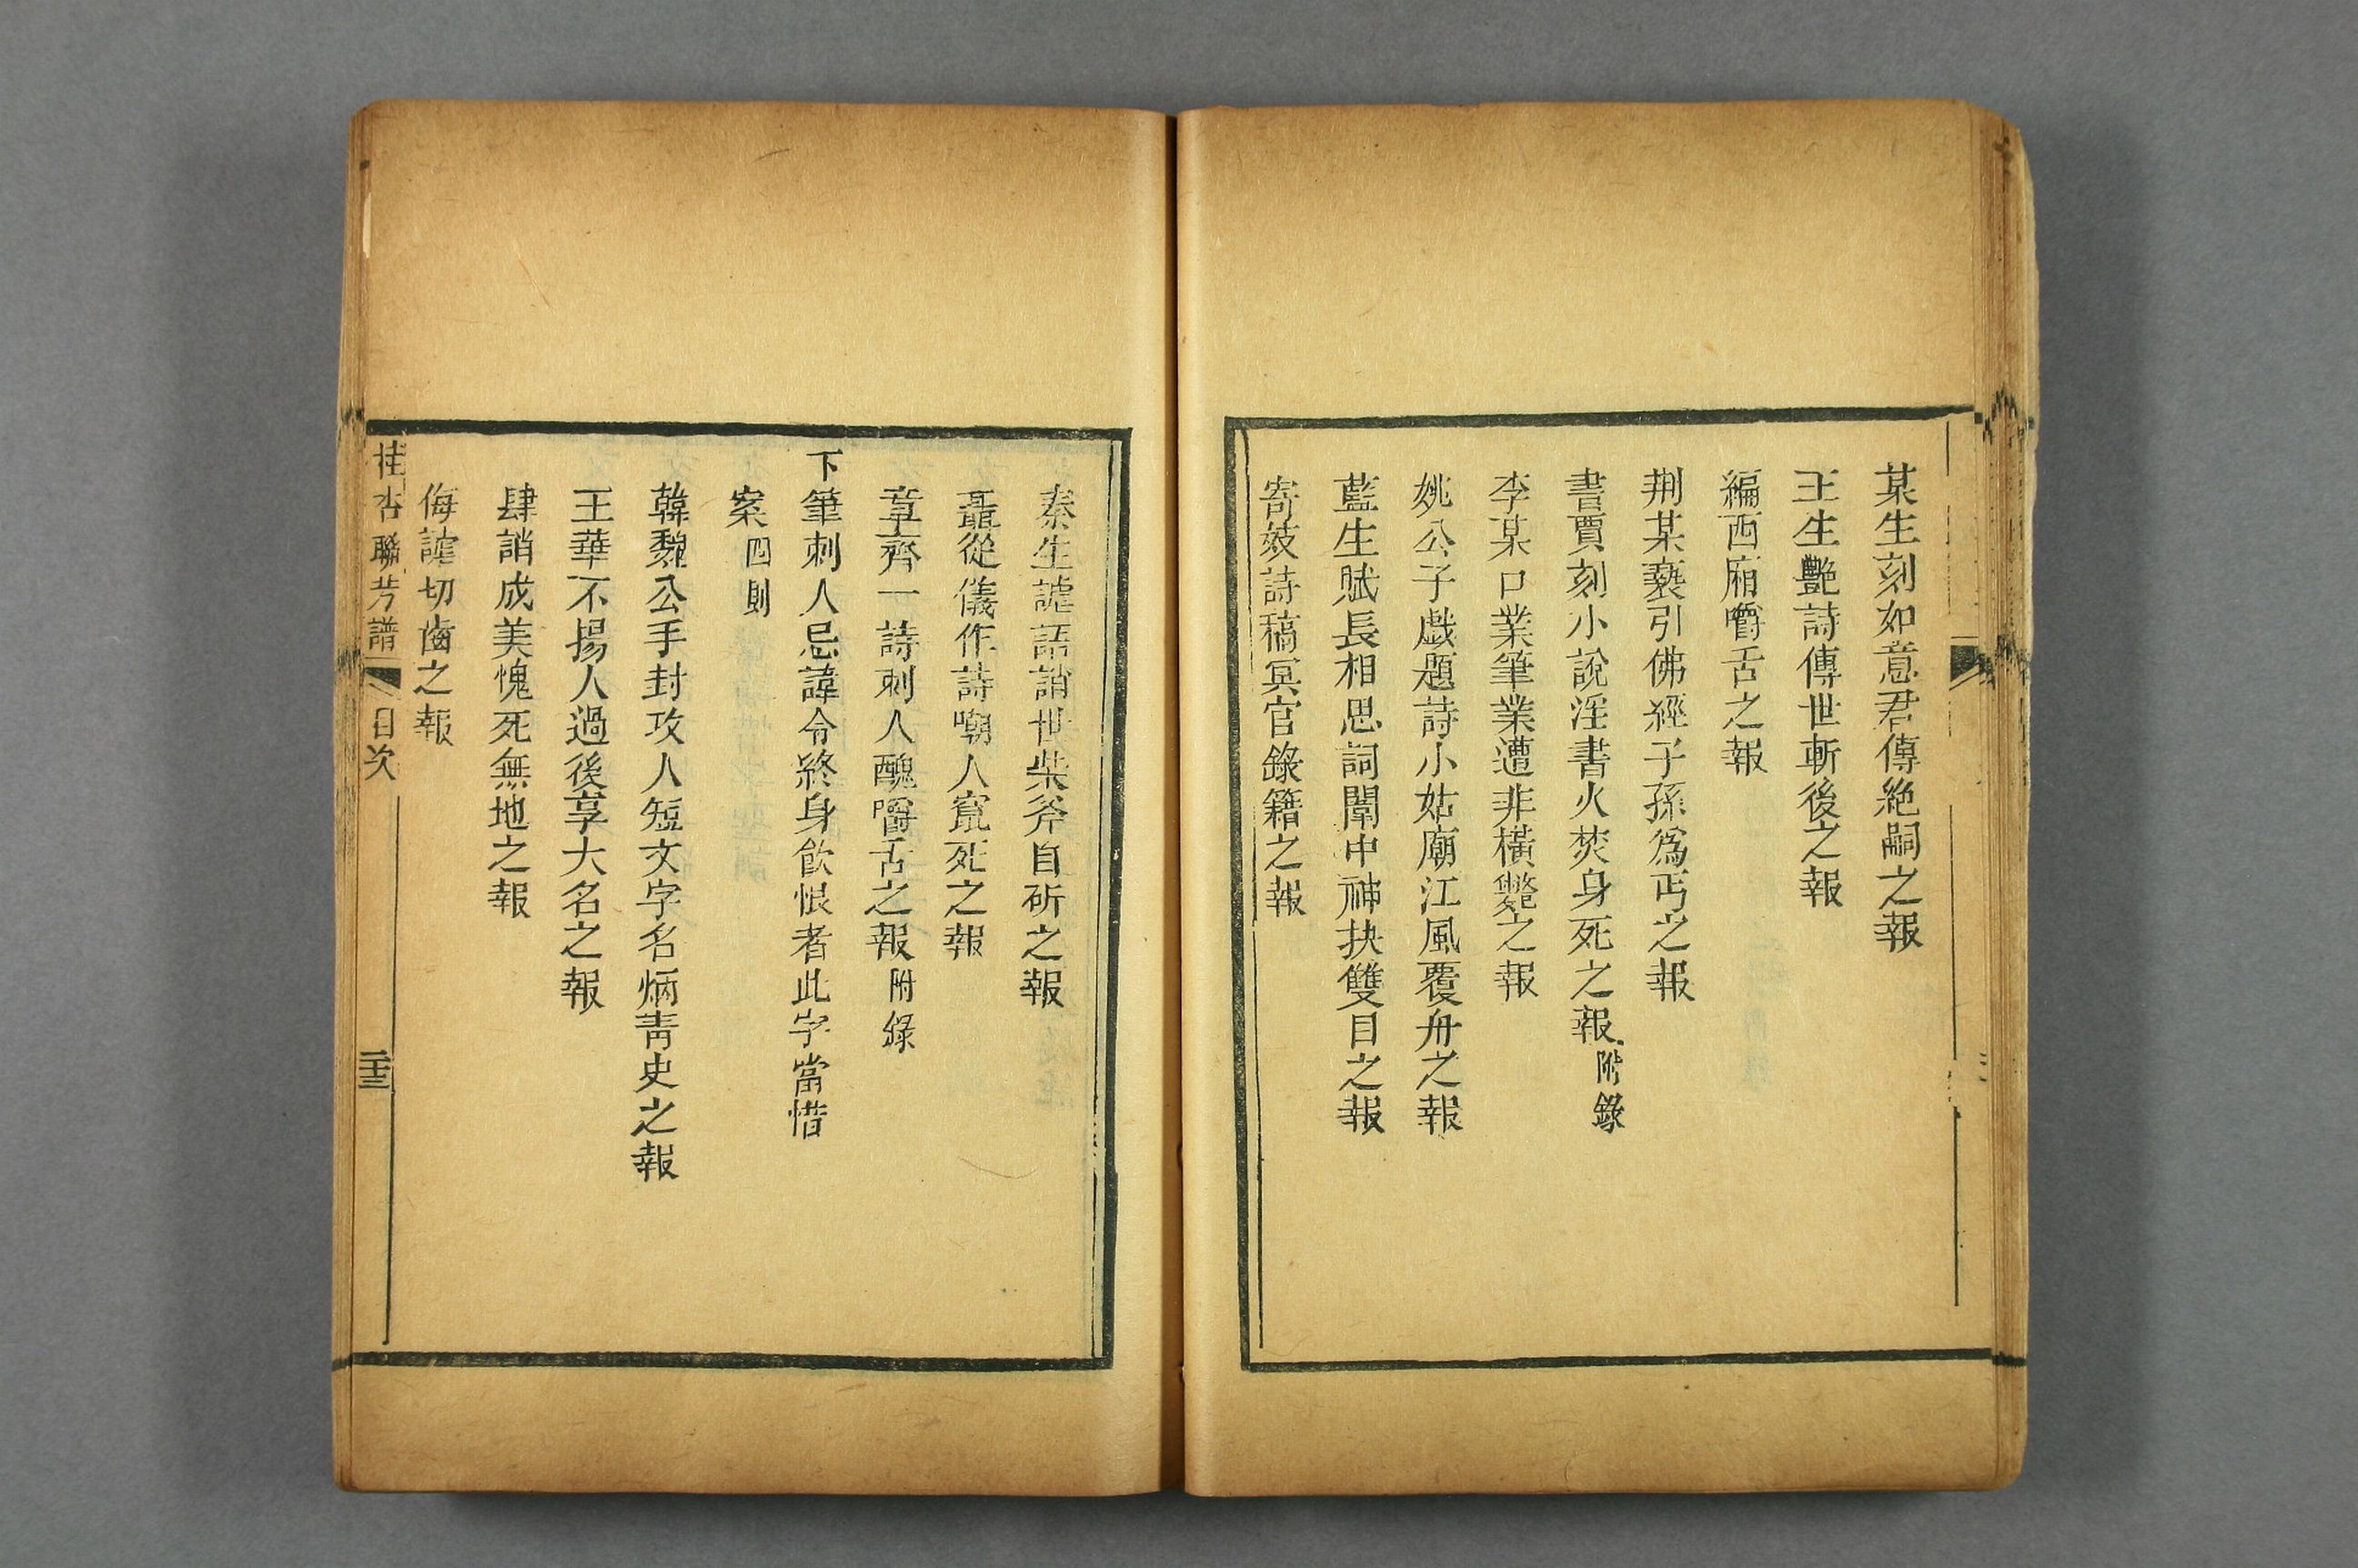 某生刻如意君傳絶嗣之報
王生艷詩傳世斬後之報
編西廂嚼舌之報
荆某褻引佛經子孫爲丐之報
書賈刻小說淫書火焚身死之報附錄
李某口業筆業遭非橫斃之報
姚公子戲題詩小姑廟江風覆舟之報
藍生賦長相思詞闈中神抉雙目之報
寄妓詩稿冥官錄籍之報
秦生謔語誚世柴斧自斫之報
聶從儀作詩嘲人竄死之報
章齊一詩刺人醜嚼舌之報附錄
下筆刺人忌諱令終身飮恨者此字當惜
案四則
韓魏公手封攻人短文字名炳靑史之報
王華不揚人過後享大名之報
肆誚成美愧死無地之報
侮謔切齒之報
桂杏聯芳譜 目次 二十三